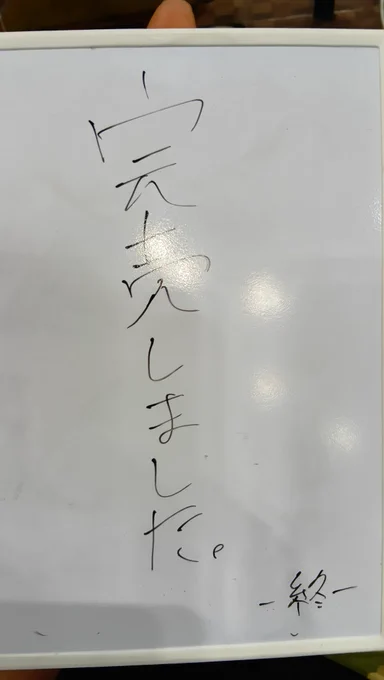 完売しました。
-終-